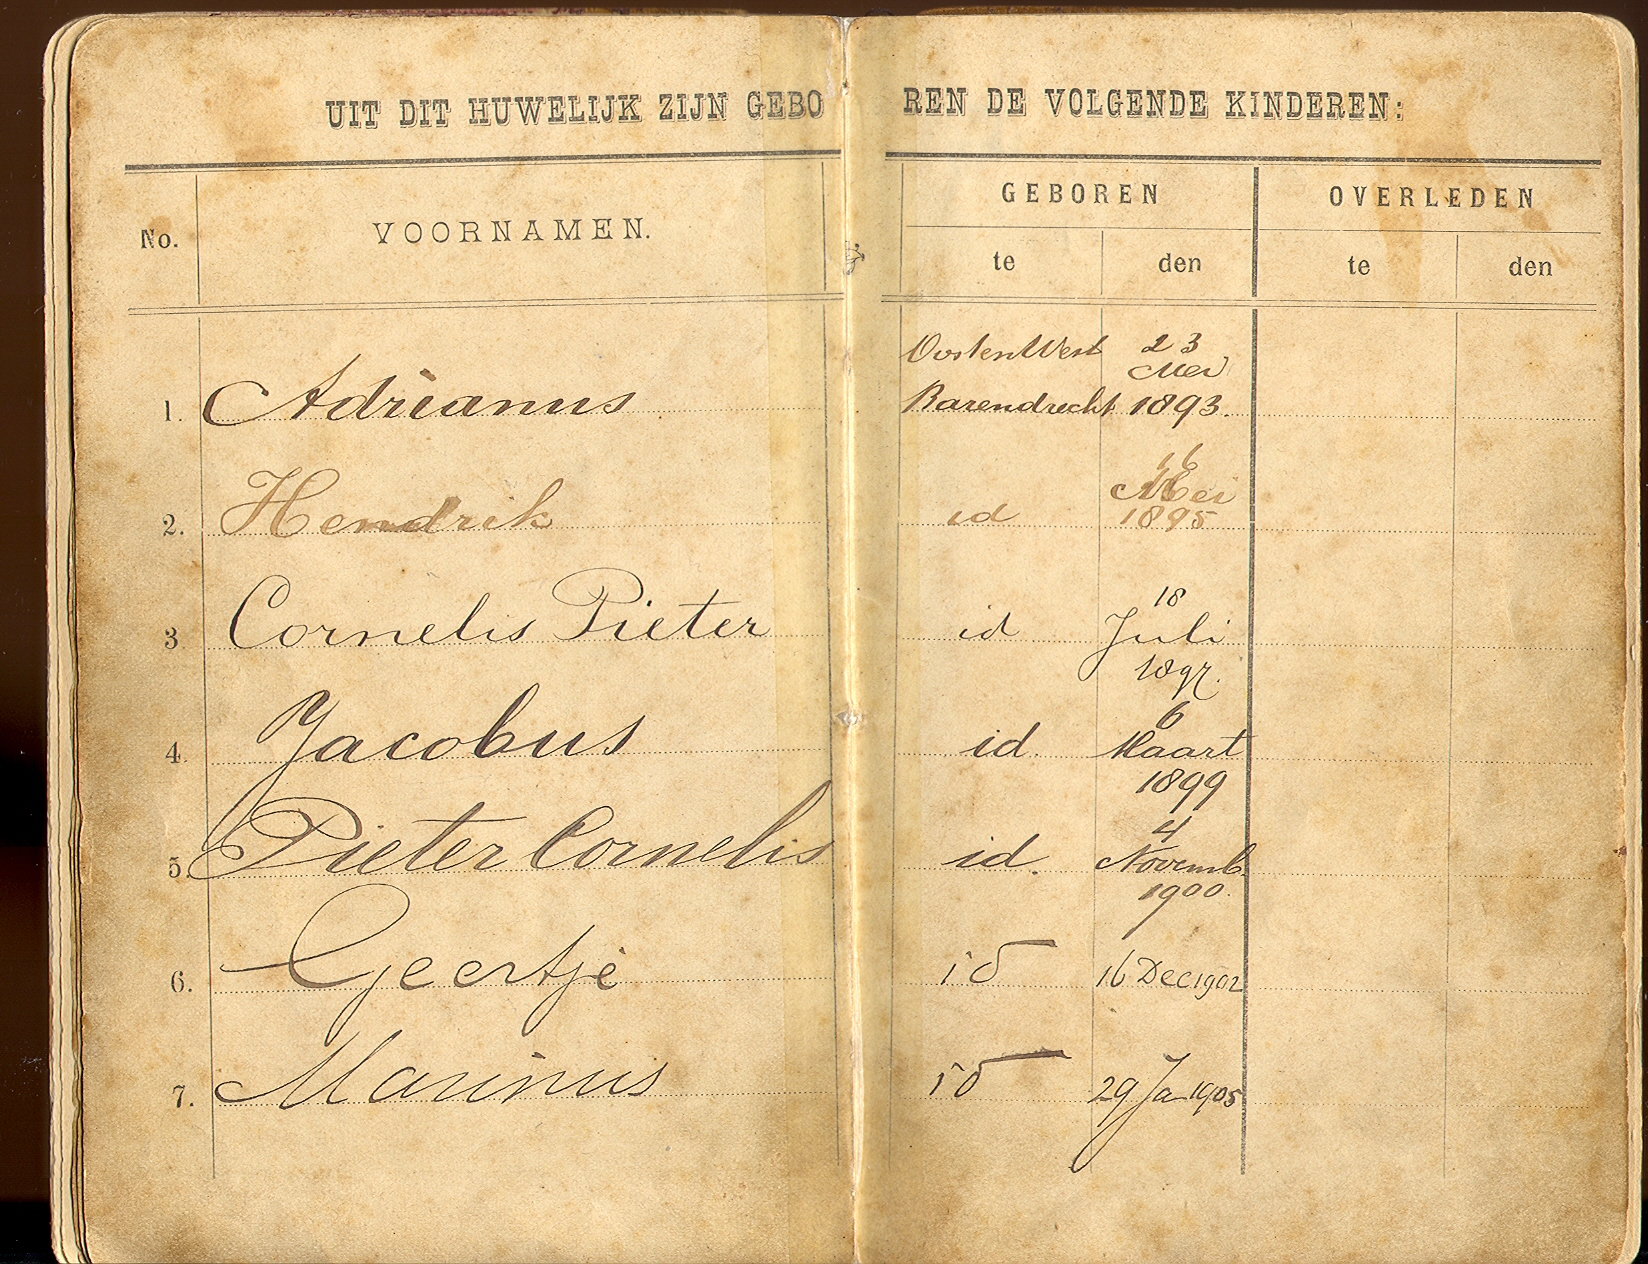 UIT DIT HUWELIJK ZIJN GEBOREN DE VOLGENDE KINDEREN:
No. VOORNAMEN. GEBOREN OVERLEDEN
te den te den
OostenWest 23
Mei
1. Adrianus Barendrecht 1893.
16
Mei
2. Hendrik id 1895
18
3 Cornelis Pieter id Juli
1897.
6
4 Jacobus id. Maart
1899
4
5 Pieter Cornelis id. Novemb.
1900.
6. Geertje id 16 Dec 1902
7. Marinus id 29 Ja 1905